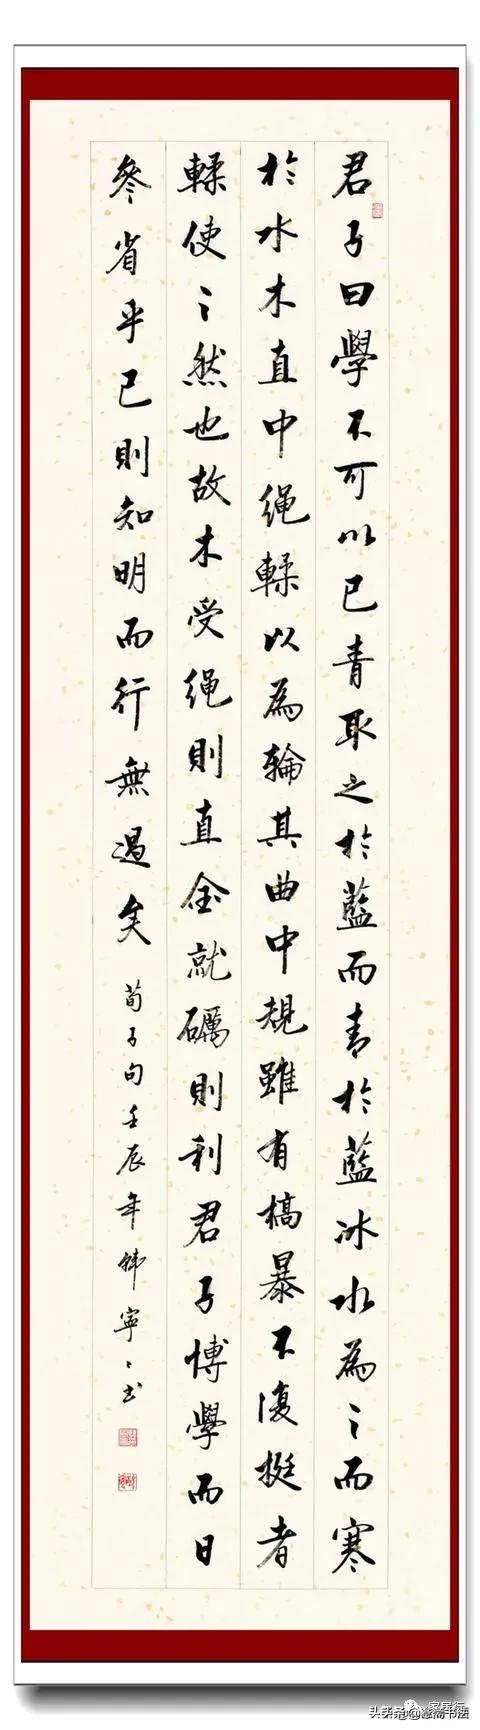 君子曰學不可以已青取之於藍而青於藍冰水為之而寒
於水木直中繩輮以為輪其曲中規雖有槁暴不復挺者
輮使之然也故木受繩則直金就礪則利君子博學而日
參省乎己則知明而行無過矣 荀子句壬辰年韓寧〻书